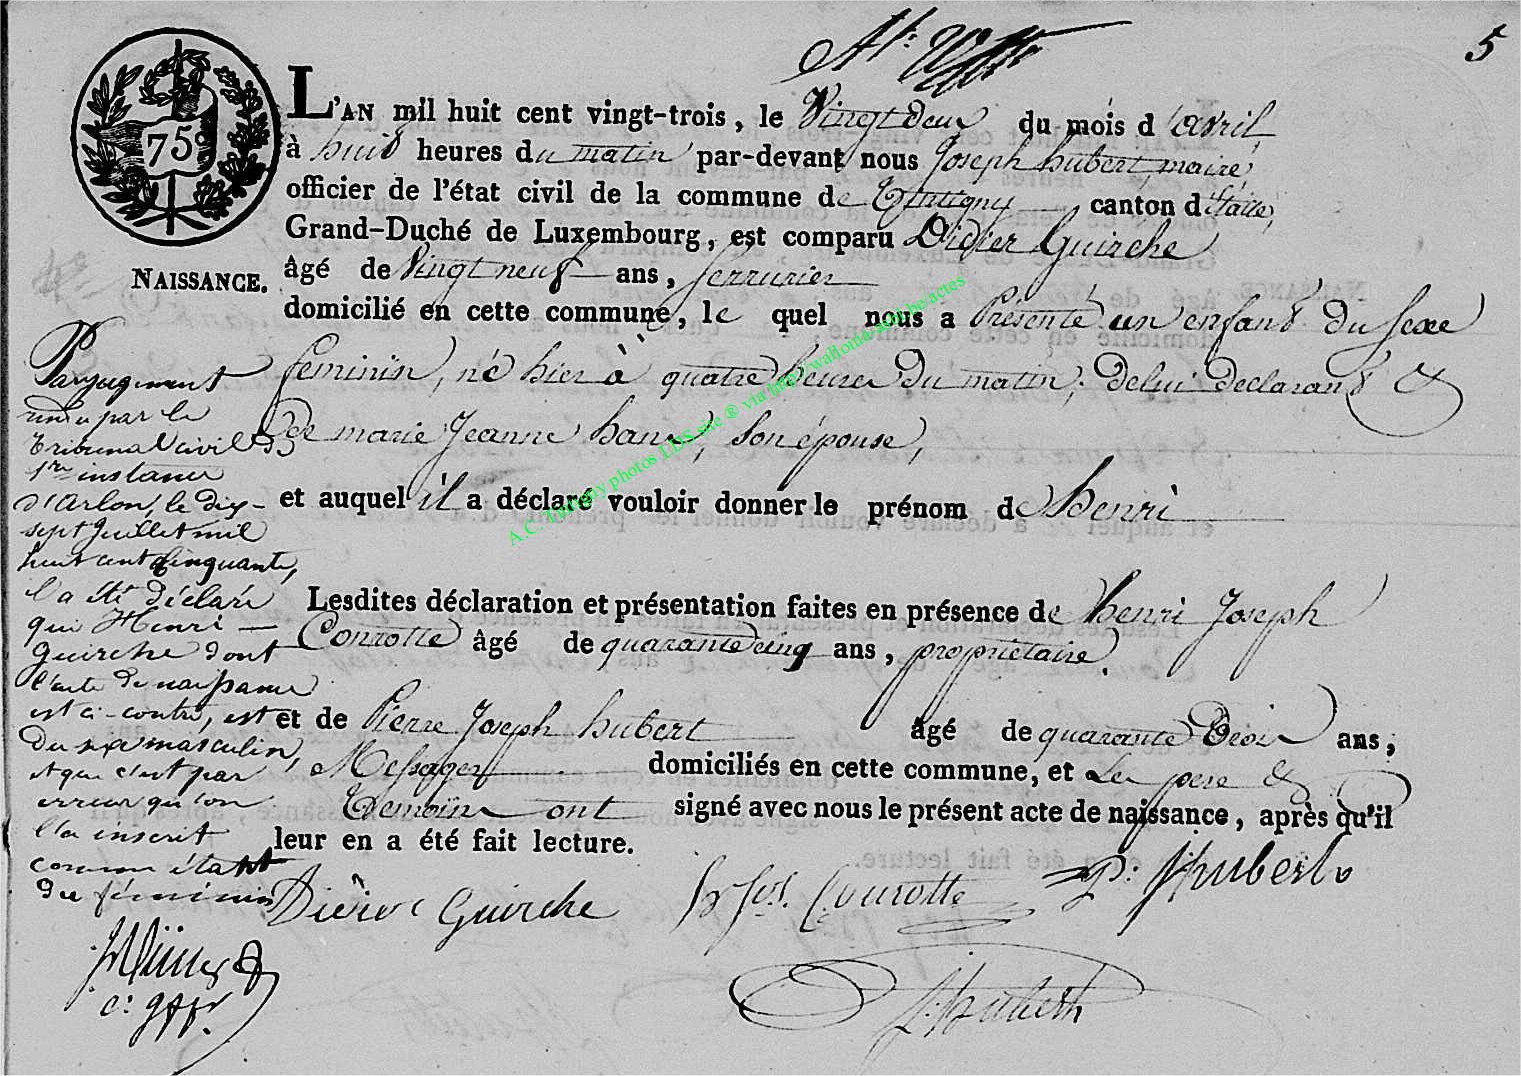 5
75
L'AN mil huit cent vingt-trois, le Vingt deux du mois d'avril,
à huit heures du matin par-devant nous Joseph hubert, maire
officier de l'état civil de la commune de Tintigny canton d'Etalle,
Grand-Duché de Luxembourg, est comparu Didier Guirche
NAISSANCE.
âgé de Vingt neuf ans, serrurier
domicilié en cette commune, le quel nous a Présenté un enfant du sexe
feminin, né hier à quatre heures du matin, de lui declarant &
de marie Jeanne hans, son épouse,
et auquel il a déclaré vouloir donner le prénom de henri
Lesdites déclaration et présentation faites en présence de henri Joseph
Conrotte âgé de quarante cinq ans, propriétaire.
et de Pierre Joseph hubert âgé de quarante Deux ans,
Messager domiciliés en cette commune, et Le pere &
Temoins ont signé avec nous le présent acte de naissance, après qu'il
leur en a été fait lecture.
Par jugement
rendu par le
tribunal civil de
1re instance
d'Arlon, le dix-
sept Juillet mil
huit cent cinquante,
il a été déclaré
que Henri
Guirche dont
l'acte de naissance
est ci-contre, est
du sexe masculin,
et que c'est par
erreur qu'on
l'a inscrit
comme étant
du féminin
Didier Guirche
h Jos. Conrotte
P: J hubert
J. hubert
A.C. Tintigny photos LDS site ® via http://wallonia-asbl.be/actes